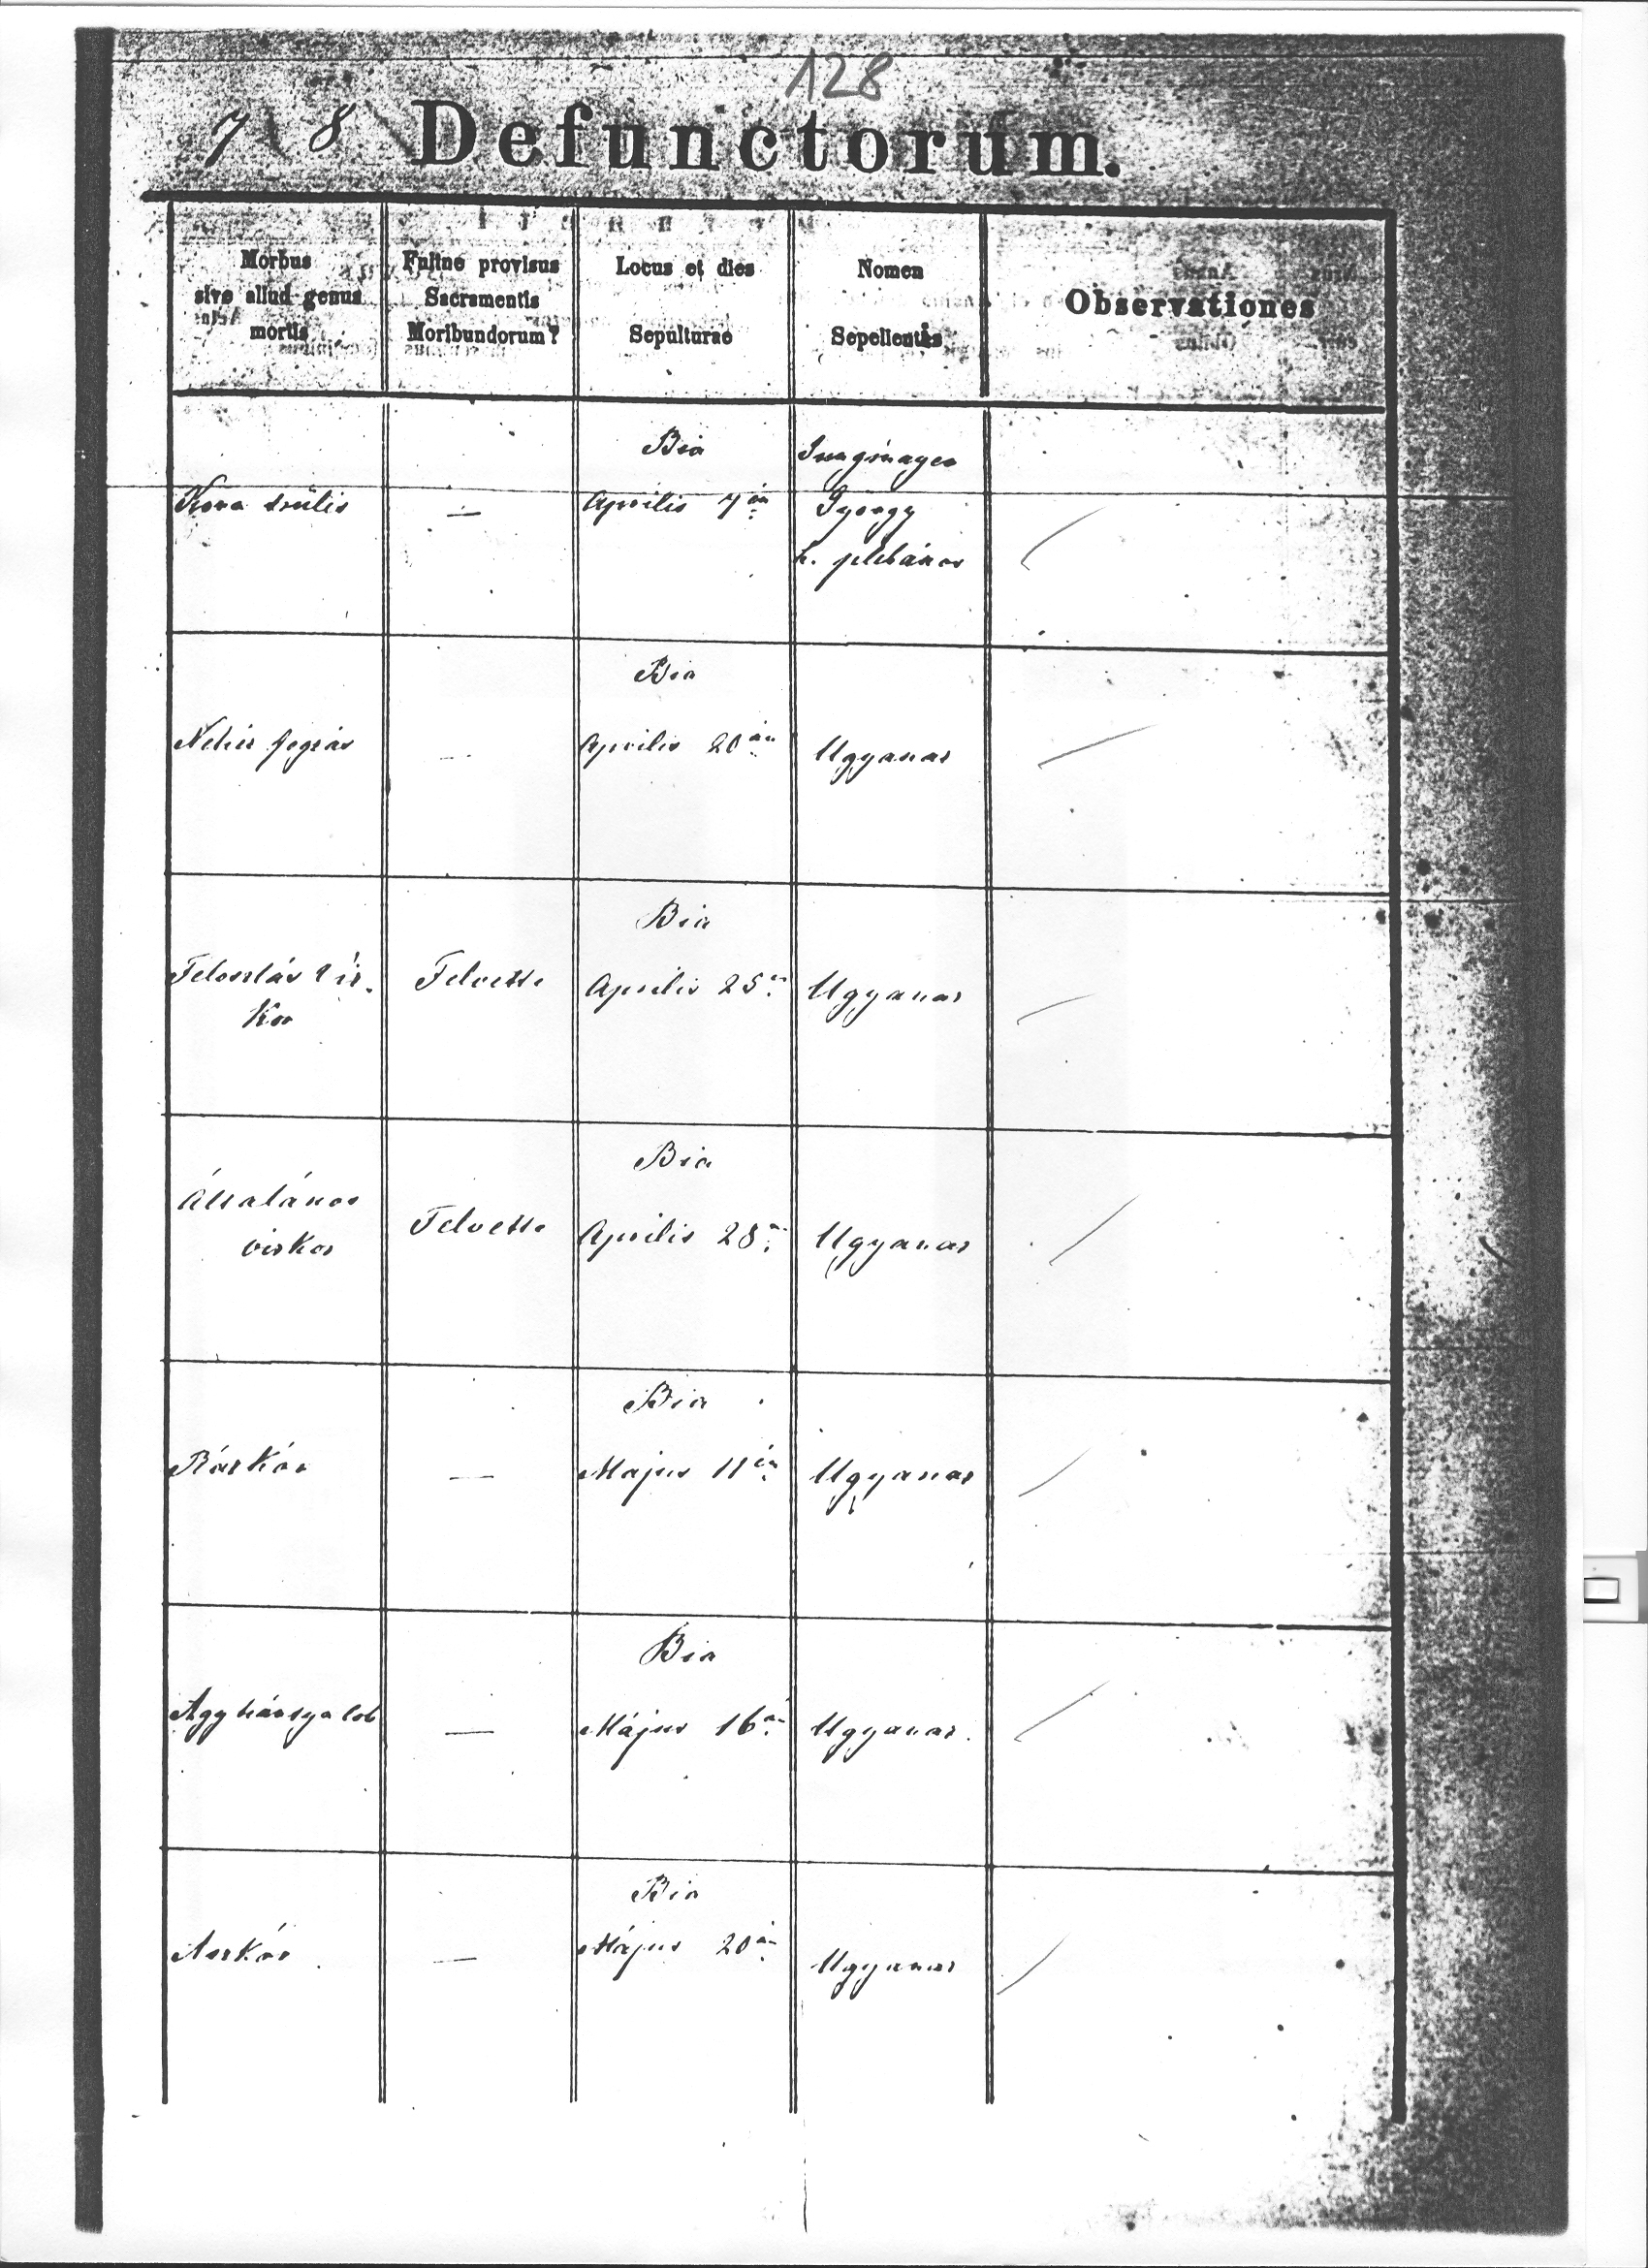 128
7 8 Defunctorum.
Morbus
sive aliud genus
mortis
Fuitne provisus
Sacramentis
Moribundorum?
Locus et dies
Sepulturae
Nomen
Sepelientis
Observationes
Kora szülés
—
Bia
Április 7én
György
h. plébános
Nehéz fogzás
—
Bia
Április 20án
Ugyanaz
Feloszlás vér-
kór
Felvette
Bia
Április 25én
Ugyanaz
Általános
vizkor
Felvette
Bia
Április 28án
Ugyanaz
Ráskór
—
Bia
Majus 11én
Ugyanaz
Agyhártya lob
—
Bia
Május 16án
Ugyanaz.
Aszkór
—
Bia
Május 20án
Ugyanaz